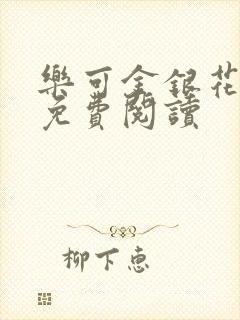 樂可金銀花
免費閱讀
柳下惠